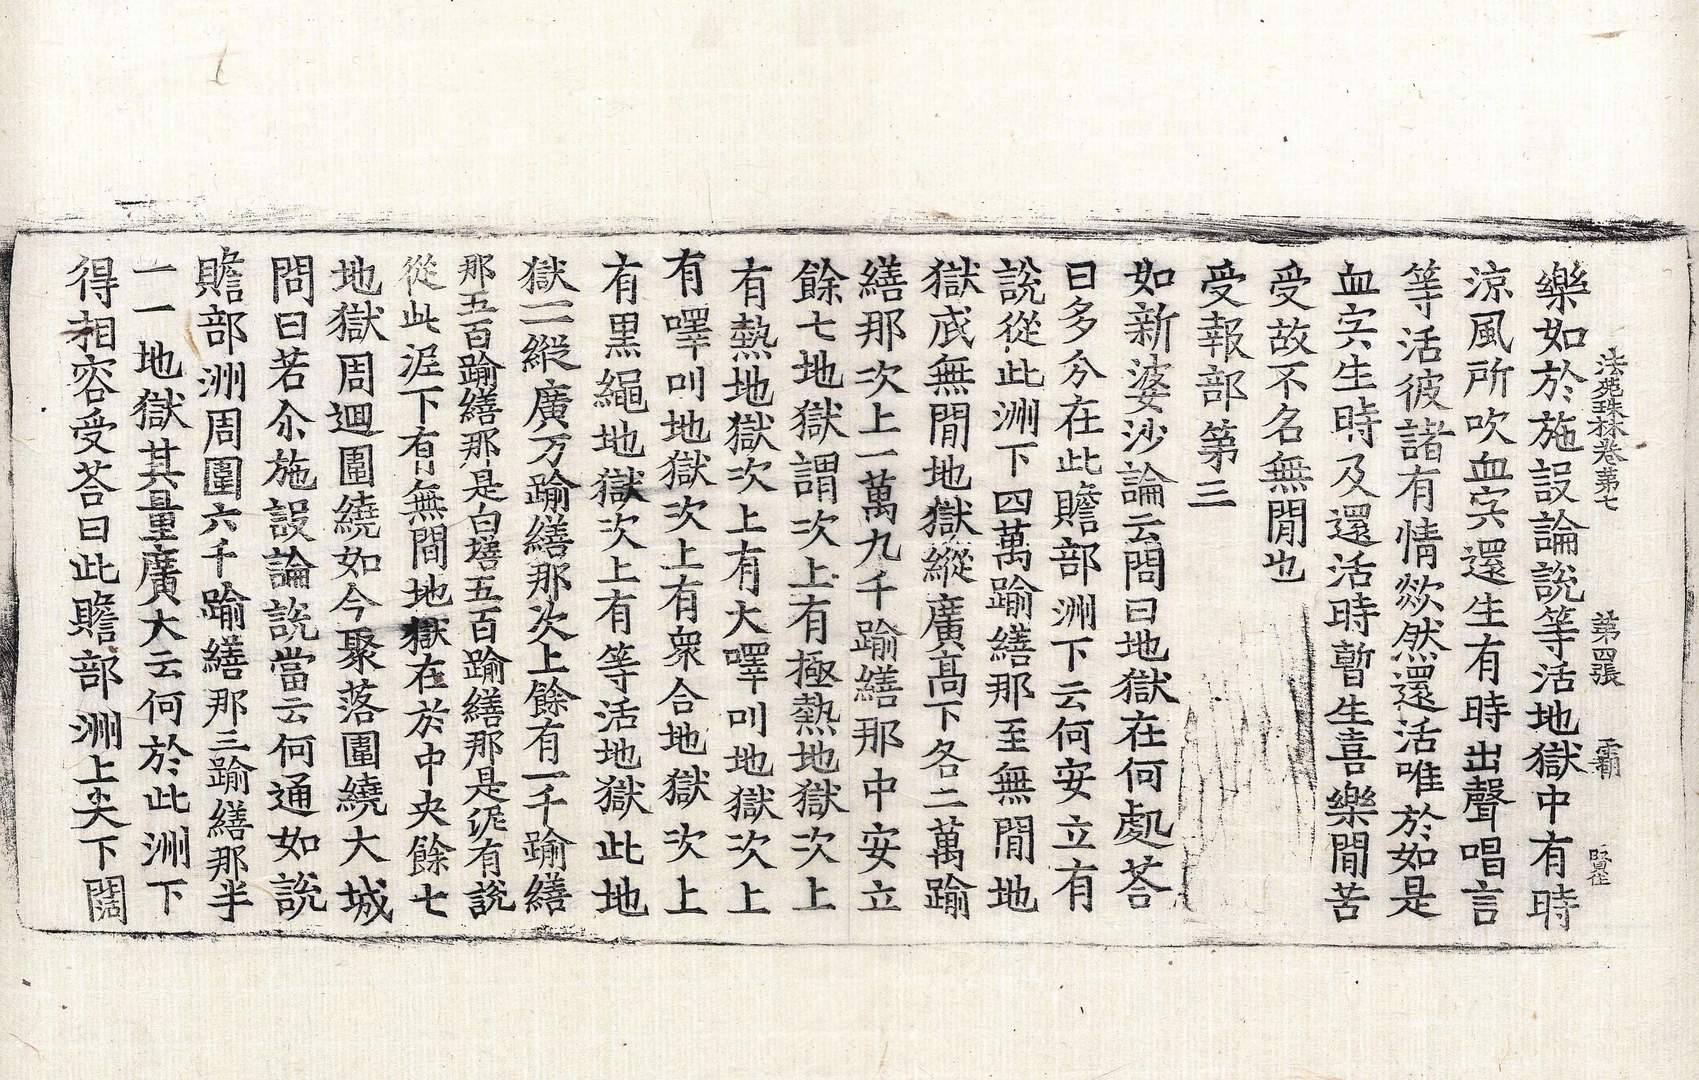 法苑珠林卷第七　第四張　霸
樂如於施設論說等活地獄中有時
涼風所吹血肉還生有時出聲唱言
等活彼諸有情欻然還活唯於如是
血肉生時及還活時暫生喜樂閒苦
受故不名無閒也
受報部第三
如新婆沙論云問曰地獄在何處荅
曰多分在此贍部洲下云何安立有
說從此洲下四萬踰繕那至無閒地
獄底無閒地獄縱廣高下各二萬踰
繕那次上一萬九千踰繕那中安立
餘七地獄謂次上有極熱地獄次上
有熱地獄次上有大嘷叫地獄次上
有嘷叫地獄次上有衆合地獄次上
有黑繩地獄次上有等活地獄此地
獄一一縱廣万踰繕那次上餘有一千踰繕
那五百踰繕那是白墡五百踰繕那是泥有說
從此泥下有無間地獄在於中央餘七
地獄周迴圍繞如今聚落圍繞大城
問曰若尒施設論說當云何通如說
贍部洲周圍六千踰繕那三踰繕那半
一一地獄其量廣大云何於此洲下
得相容受荅曰此贍部洲上尖下闊